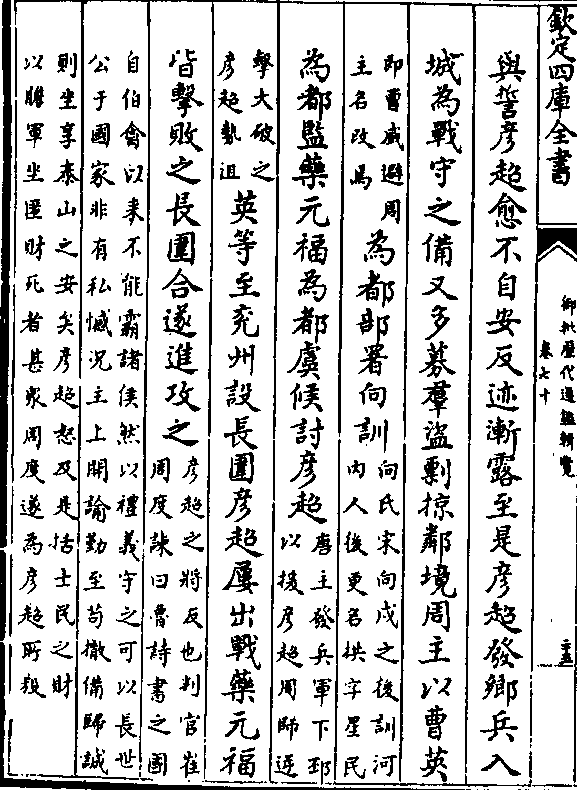 欽定四庫全書
御批歷代通鑑輯覽
卷七十
與誓彦超愈不自安反迹漸露至是彦超發鄉兵入
城為戰守之備又多募羣盜剽掠鄰境周主以曹英
即曹威避周
主名改焉
為都部署向訓
向氏宋向戌之後訓河
内人後更名拱字星民
為都監藥元福為都虞候討彦超
唐主發兵軍下邳
以援彦超周師逆
擊大破之
彦超勢沮
英等至兖州設長圍彦超屢出戰藥元福
皆擊敗之長圍合遂進攻之
彦超之將反也判官崔
周度諫曰魯詩書之國
自伯禽以来不能霸諸侯然以禮義守之可以長世
公于國家非有私憾況主上開諭勤至苟撤備歸誠
則坐享泰山之安矣彦超怒及是括士民之財
以贍軍坐匿財死者甚衆周度遂為彦超所殺